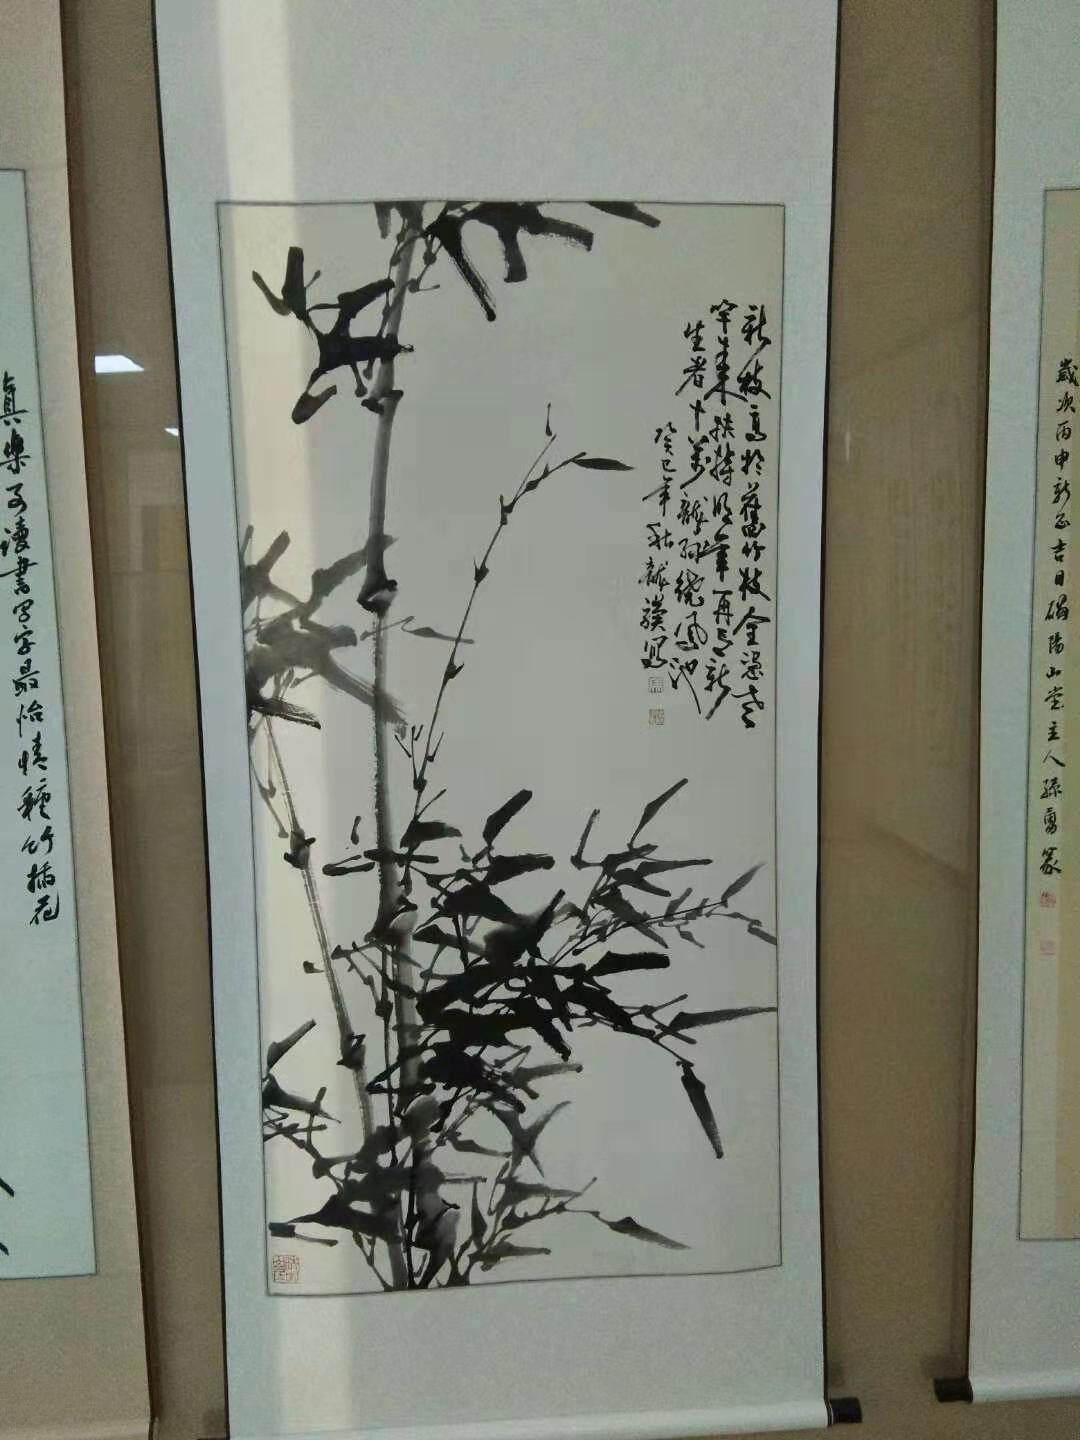 新枝高於舊竹枝全憑老
竿來扶持明年再有新
生者十萬龍孫繞鳳池
癸巳年秋龍骧寫
真樂事讀書寫字最怡情種竹插花
歲次丙申新正吉日磄陽山堂主人孫勇篆